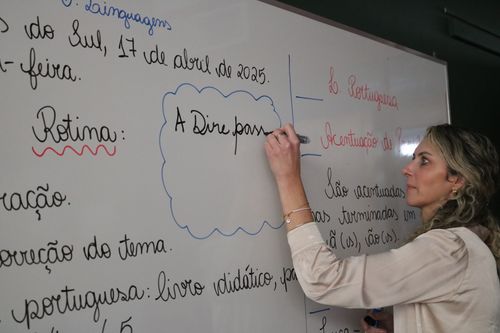 Linguagens
do Sul, 17 de abril de 2025.
feira.
Rotina:
A Dire pass
ração.
orreção do tema.
portuguesa: livro didático,
L. Portuguesa
Acentuação de
São acentuadas
terminadas em
ã(s), ão(s).